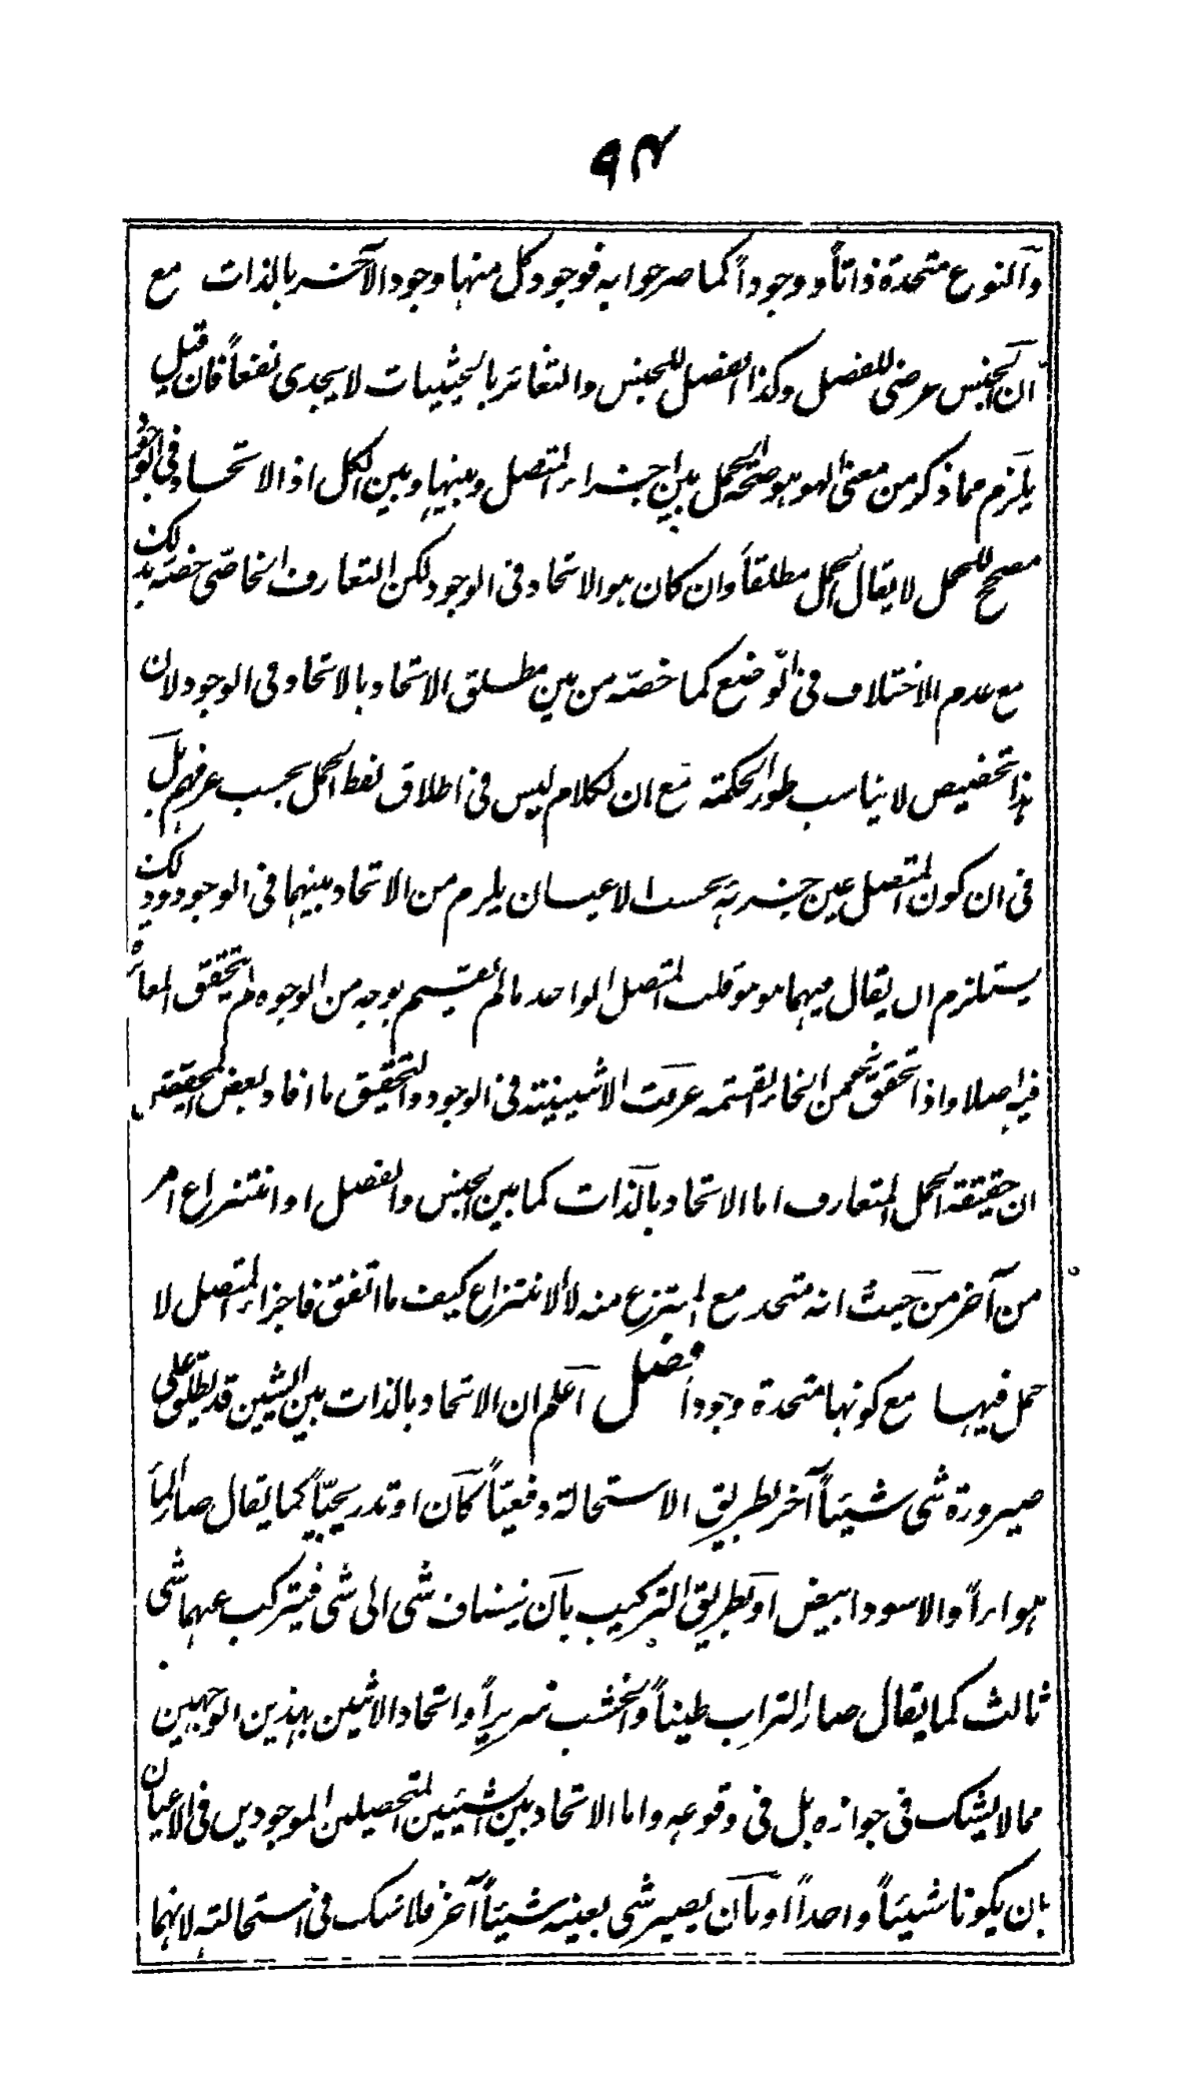 ٩٤
والنوع متحدة ذاتاً ووجوداً كما صرحوا به فوجود كل منها وجود الآخر بالذات مع
ان الجنس عرضى للفصل وكذا الفصل للجنس والتغائر بالحيثيات لا يجدى نفعاً فان قيل
يلزم مما ذكر من معنى الهوهو صحة الحمل بين اجزاء المتصل وبينها وبين الكل اذ الاتحاد فى الوجود
مصحح للحمل لا يقال الحمل مطلقاً وان كان هو الاتحاد فى الوجود لكن التعارف الخاصى خصه بذلك
مع عدم الاختلاف فى الوضع كما خصه من بين مطلق الاتحاد بالاتحاد فى الوجود لان
هذا تخصيص لا يناسب طور الحكمة مع ان الكلام ليس فى اطلاق لفظ الحمل بحسب عرفهم بل
فى ان كون المتصل عين جزئه بحسب الاعيان يلزم من الاتحاد بينهما فى الوجود وذلك
يستلزم ان يقال فيهما هو هو قلت المتصل الواحد ما لم ينقسم بوجه من الوجوه لم يتحقق المغائرة
فيه اصلا واذا تحقق نحو من انحاء القسمة عرضت الاثنينية فى الوجود والتحقيق ما افاد بعض المحققين
ان حقيقة الحمل المتعارف اما الاتحاد بالذات كما بين الجنس والفصل او انتزاع امر
من آخر من حيث انه متحد مع المنتزع منه لا الانتزاع كيف ما اتفق فاجزاء المتصل لا
حمل فيها مع كونها متحدة وجوداً فصل اعلم ان الاتحاد بالذات بين الشيئين قد يطلق على
صيرورة شى شيئاً آخر بطريق الاستحالة دفعيّاً كان او تدريجيّاً كما يقال صار الماء
هواءاً والاسود ابيض او بطريق التركيب بان ينضاف شى الى شى فيتركب عنهما شى
ثالث كما يقال صار التراب طيناً والخشب سريراً واتحاد الاثنين بهذين الوجهين
مما لا يشك فى جوازه بل فى وقوعه واما الاتحاد بين الشيئين المتحصلين الموجودين فى الاعيان
بان يكونا شيئاً واحداً او بان يصير شى بعينه شيئاً آخر فلا شك فى استحالته لانهما